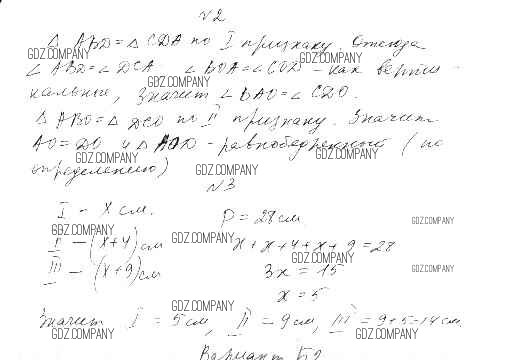 №2
△ ABD = △ CDA по I признаку. Отсюда
GDZ.COMPANY GDZ.COMPANY
∠ ABD = ∠ DCA ∠ BOA = ∠ COD - как верти-
GDZ.COMPANY
кальные, значит ∠ BAO = ∠ CDO.
△ ABO = △ DCO по II признаку. Значит
AO = DO и △ AOD - равнобедренный (по
GDZ.COMPANY GDZ.COMPANY
определению)
GDZ.COMPANY
№3
I - x см.
P = 28 см.
GDZ.COMPANY
GDZ.COMPANY
II - (x+4) см
GDZ.COMPANY
x + x + 4 + x + 9 = 28
GDZ.COMPANY
III - (x+9) см
3x = 15
GDZ.COMPANY
x = 5
GDZ.COMPANY
Значит I = 5 см, II = 9 см, III = 9+5=14 см
GDZ.COMPANY GDZ.COMPANY
Вариант Б2